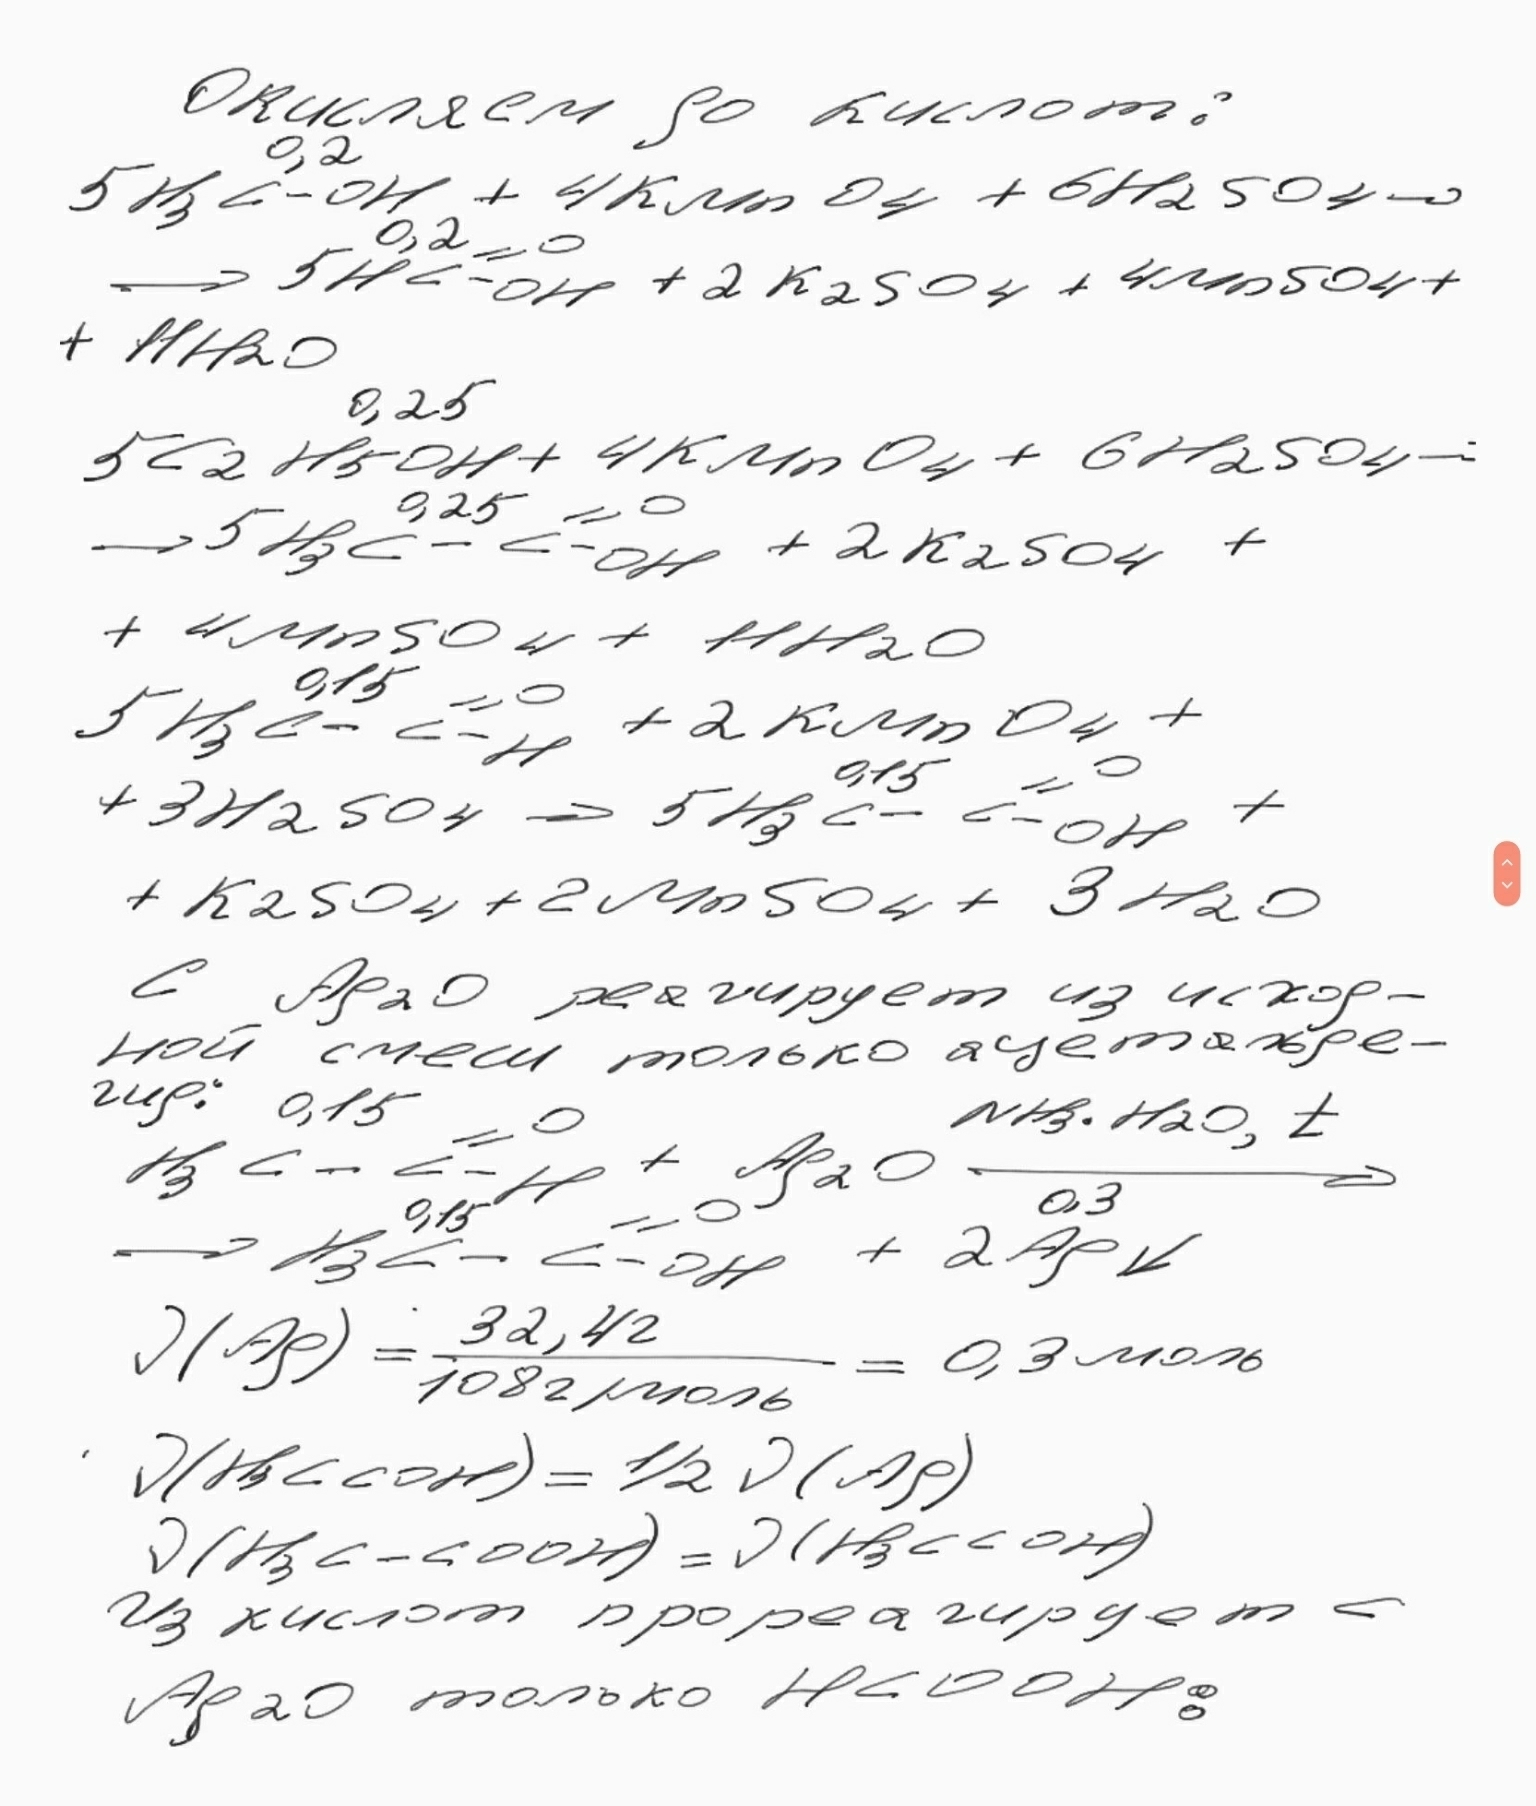 Окисляем до кислот:
0,2
5H3C-OH + 4KMnO4 + 6H2SO4→
0,2
→ 5HC=O-OH + 2K2SO4 + 4MnSO4+
+ 11H2O
0,25
5C2H5OH+ 4KMnO4 + 6H2SO4→
0,25
→5H3C-C=O-OH + 2K2SO4 +
+ 4MnSO4 + 11H2O
0,15
5H3C-C=O-H + 2KMnO4 +
0,15
+3H2SO4 → 5H3C-C=O-OH +
+ K2SO4 + 2MnSO4 + 3H2O
С Ag2O реагирует из исход-
ной смеси только ацетальде-
гид:
0,15 NH3·H2O, t
H3C-C=O-H + Ag2O →
0,15 0,3
→ H3C-C=O-OH + 2Ag↓
ν(Ag) = 32,4г / 108г/моль = 0,3моль
ν(H3CCOH) = 1/2 ν(Ag)
ν(H3C-COOH) = ν(H3CCOH)
Из кислот прореагирует с
Ag2O только HCOOH: